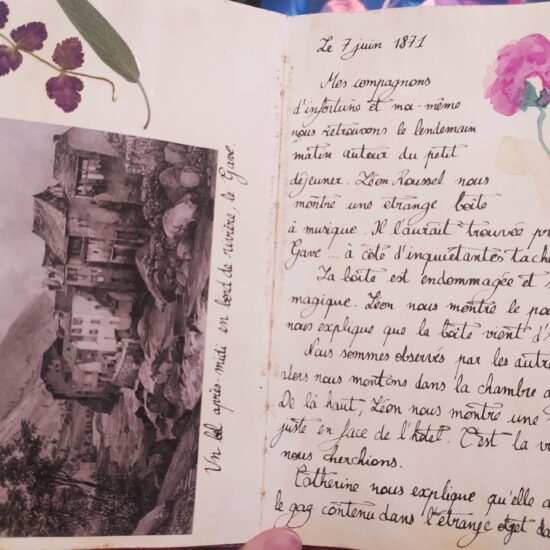 Un bel après-midi en bord de rivière, le Gave.
Le 7 juin 1871
Mes compagnons
d'infortune et moi-même
nous retrouvons le lendemain
matin autour du petit
déjeuner. Léon Roussel nous
montre une étrange boîte
à musique. Il l'aurait trouvée
Gave... à côté d'inquiétantes
La boîte est endommagée et
magique. Léon nous montre le
nous explique que la boîte vient
Nous sommes observés par les
alors nous montons dans la chambre
De là haut, Léon nous montre une
juste en face de l'hotel. C'est la
nous cherchions.
Catherine nous explique qu'elle
le gag contenu dans l'étrange objet